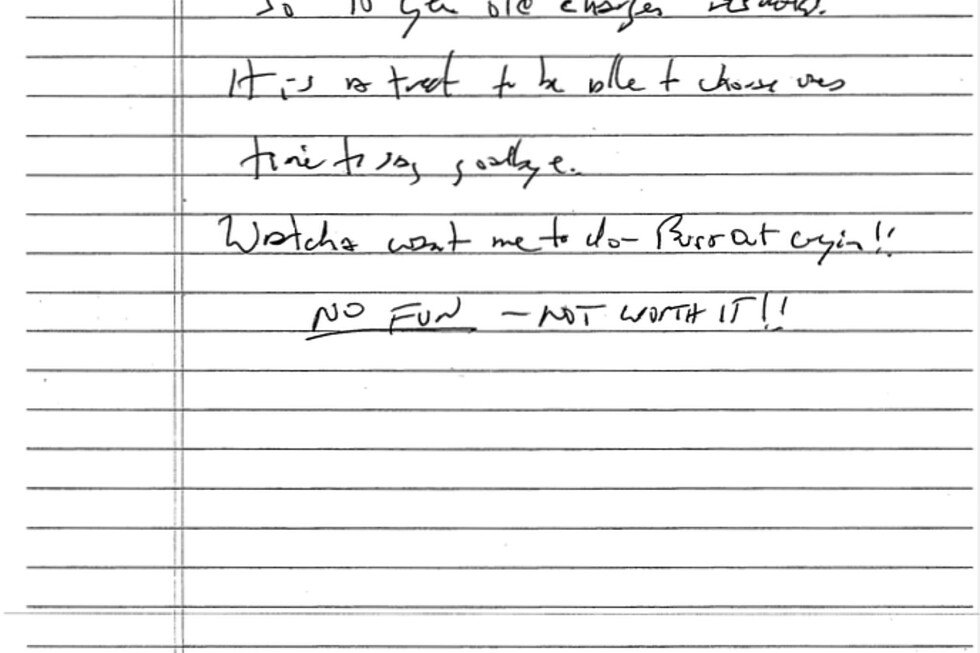 So 10 year old charges results.
It is a treat to be able to choose ones
time to say goodbye.
Watcha want me to do - Burst out cryin!!
NO FUN - NOT WORTH IT!!